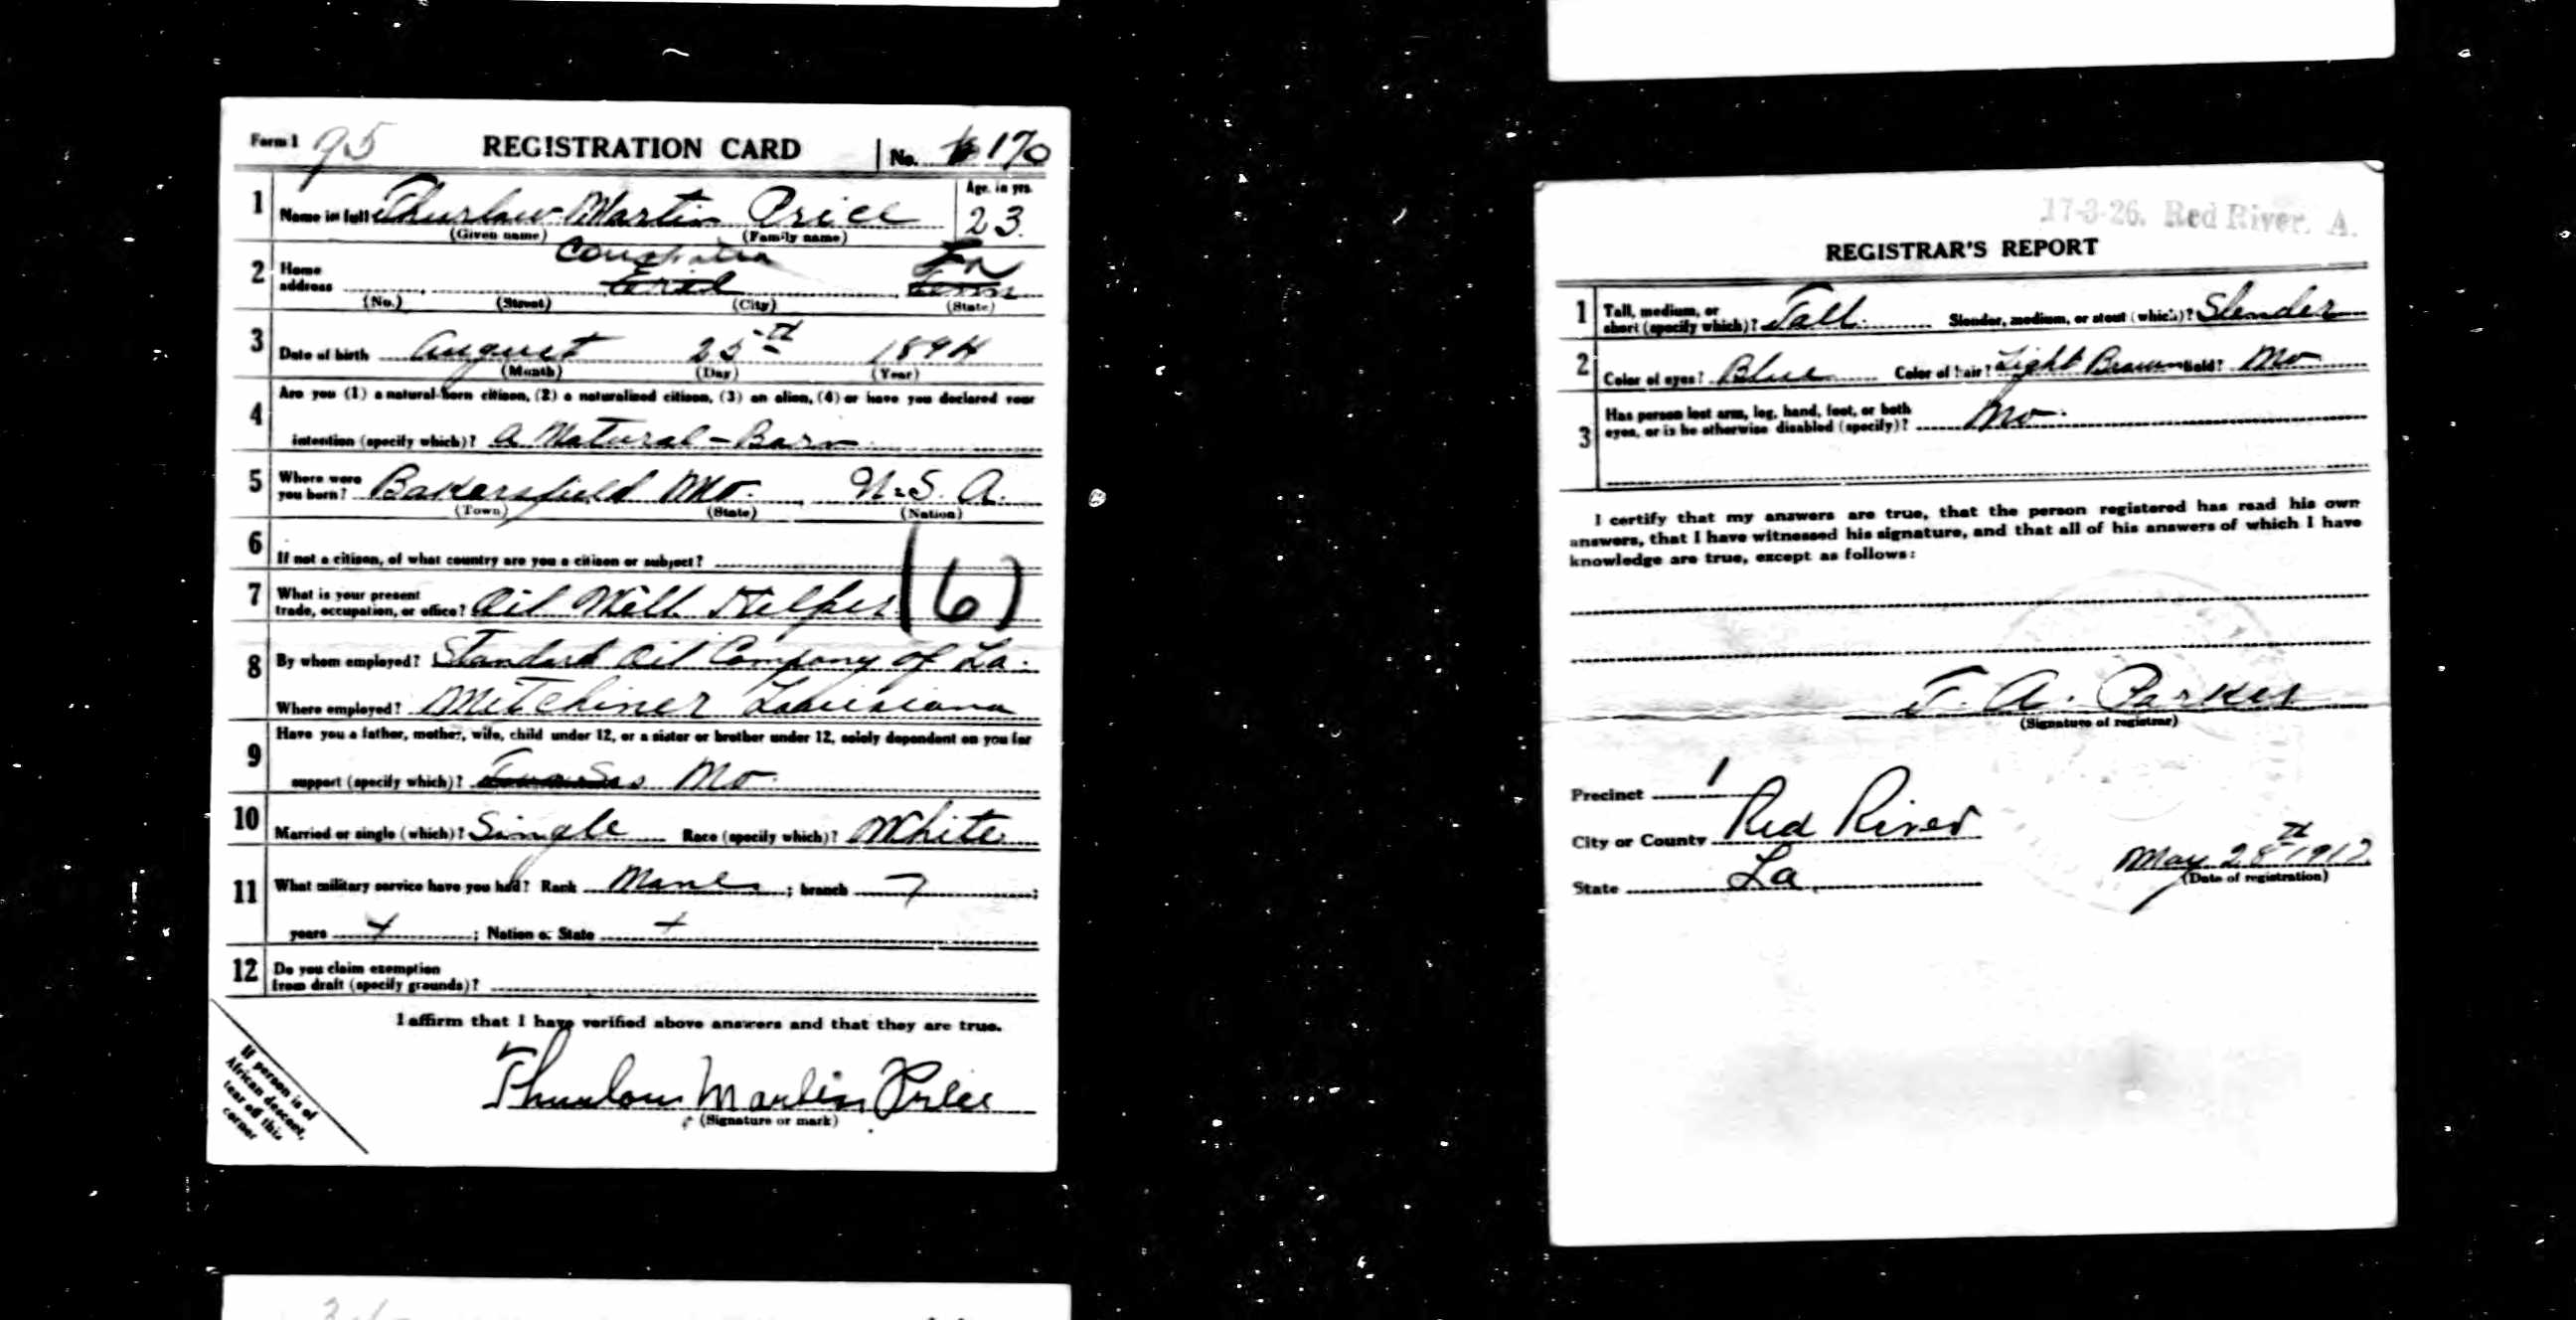 Form 1 95 REGISTRATION CARD No. 170
1 Name in full Thurlow Martin Price Age, in yrs. 23
(Given name) (Family name)
Coushatta La
2 Home address
(No.) (Street) (City) (State)
3 Date of birth August 25th 1894
(Month) (Day) (Year)
4 Are you (1) a natural-born citizen, (2) a naturalized citizen, (3) an alien, (4) or have you declared your
intention (specify which)? a Natural-Born
5 Where were you born? Bakersfield Mo. U.S.A.
(Town) (State) (Nation)
6 If not a citizen, of what country are you a citizen or subject?
7 What is your present trade, occupation, or office? Oil Well Helper (6)
8 By whom employed? Standard Oil Company of La.
Where employed? Mitchiner Louisiana
9 Have you a father, mother, wife, child under 12, or a sister or brother under 12, solely dependent on you for
support (specify which)? No
10 Married or single (which)? Single Race (specify which)? White
11 What military service have you had? Rank None; branch
years ; Nation or State
12 Do you claim exemption
from draft (specify grounds)?
I affirm that I have verified above answers and that they are true.
Thurlow Martin Price
(Signature or mark)
If person is of
African descent,
tear off this
corner
17-3-26. Red River. A.
REGISTRAR'S REPORT
1 Tall, medium, or short (specify which)? Tall Slender, medium, or stout (which)? Slender
2 Color of eyes? Blue Color of hair? Light Brown Bald? No
3 Has person lost arm, leg, hand, foot, or both
eyes, or is he otherwise disabled (specify)? No.
I certify that my answers are true, that the person registered has read his own
answers, that I have witnessed his signature, and that all of his answers of which I have
knowledge are true, except as follows:
T. A. Parker
(Signature of registrar)
Precinct 1
City or County Red River
State La May 28th 1917
(Date of registration)